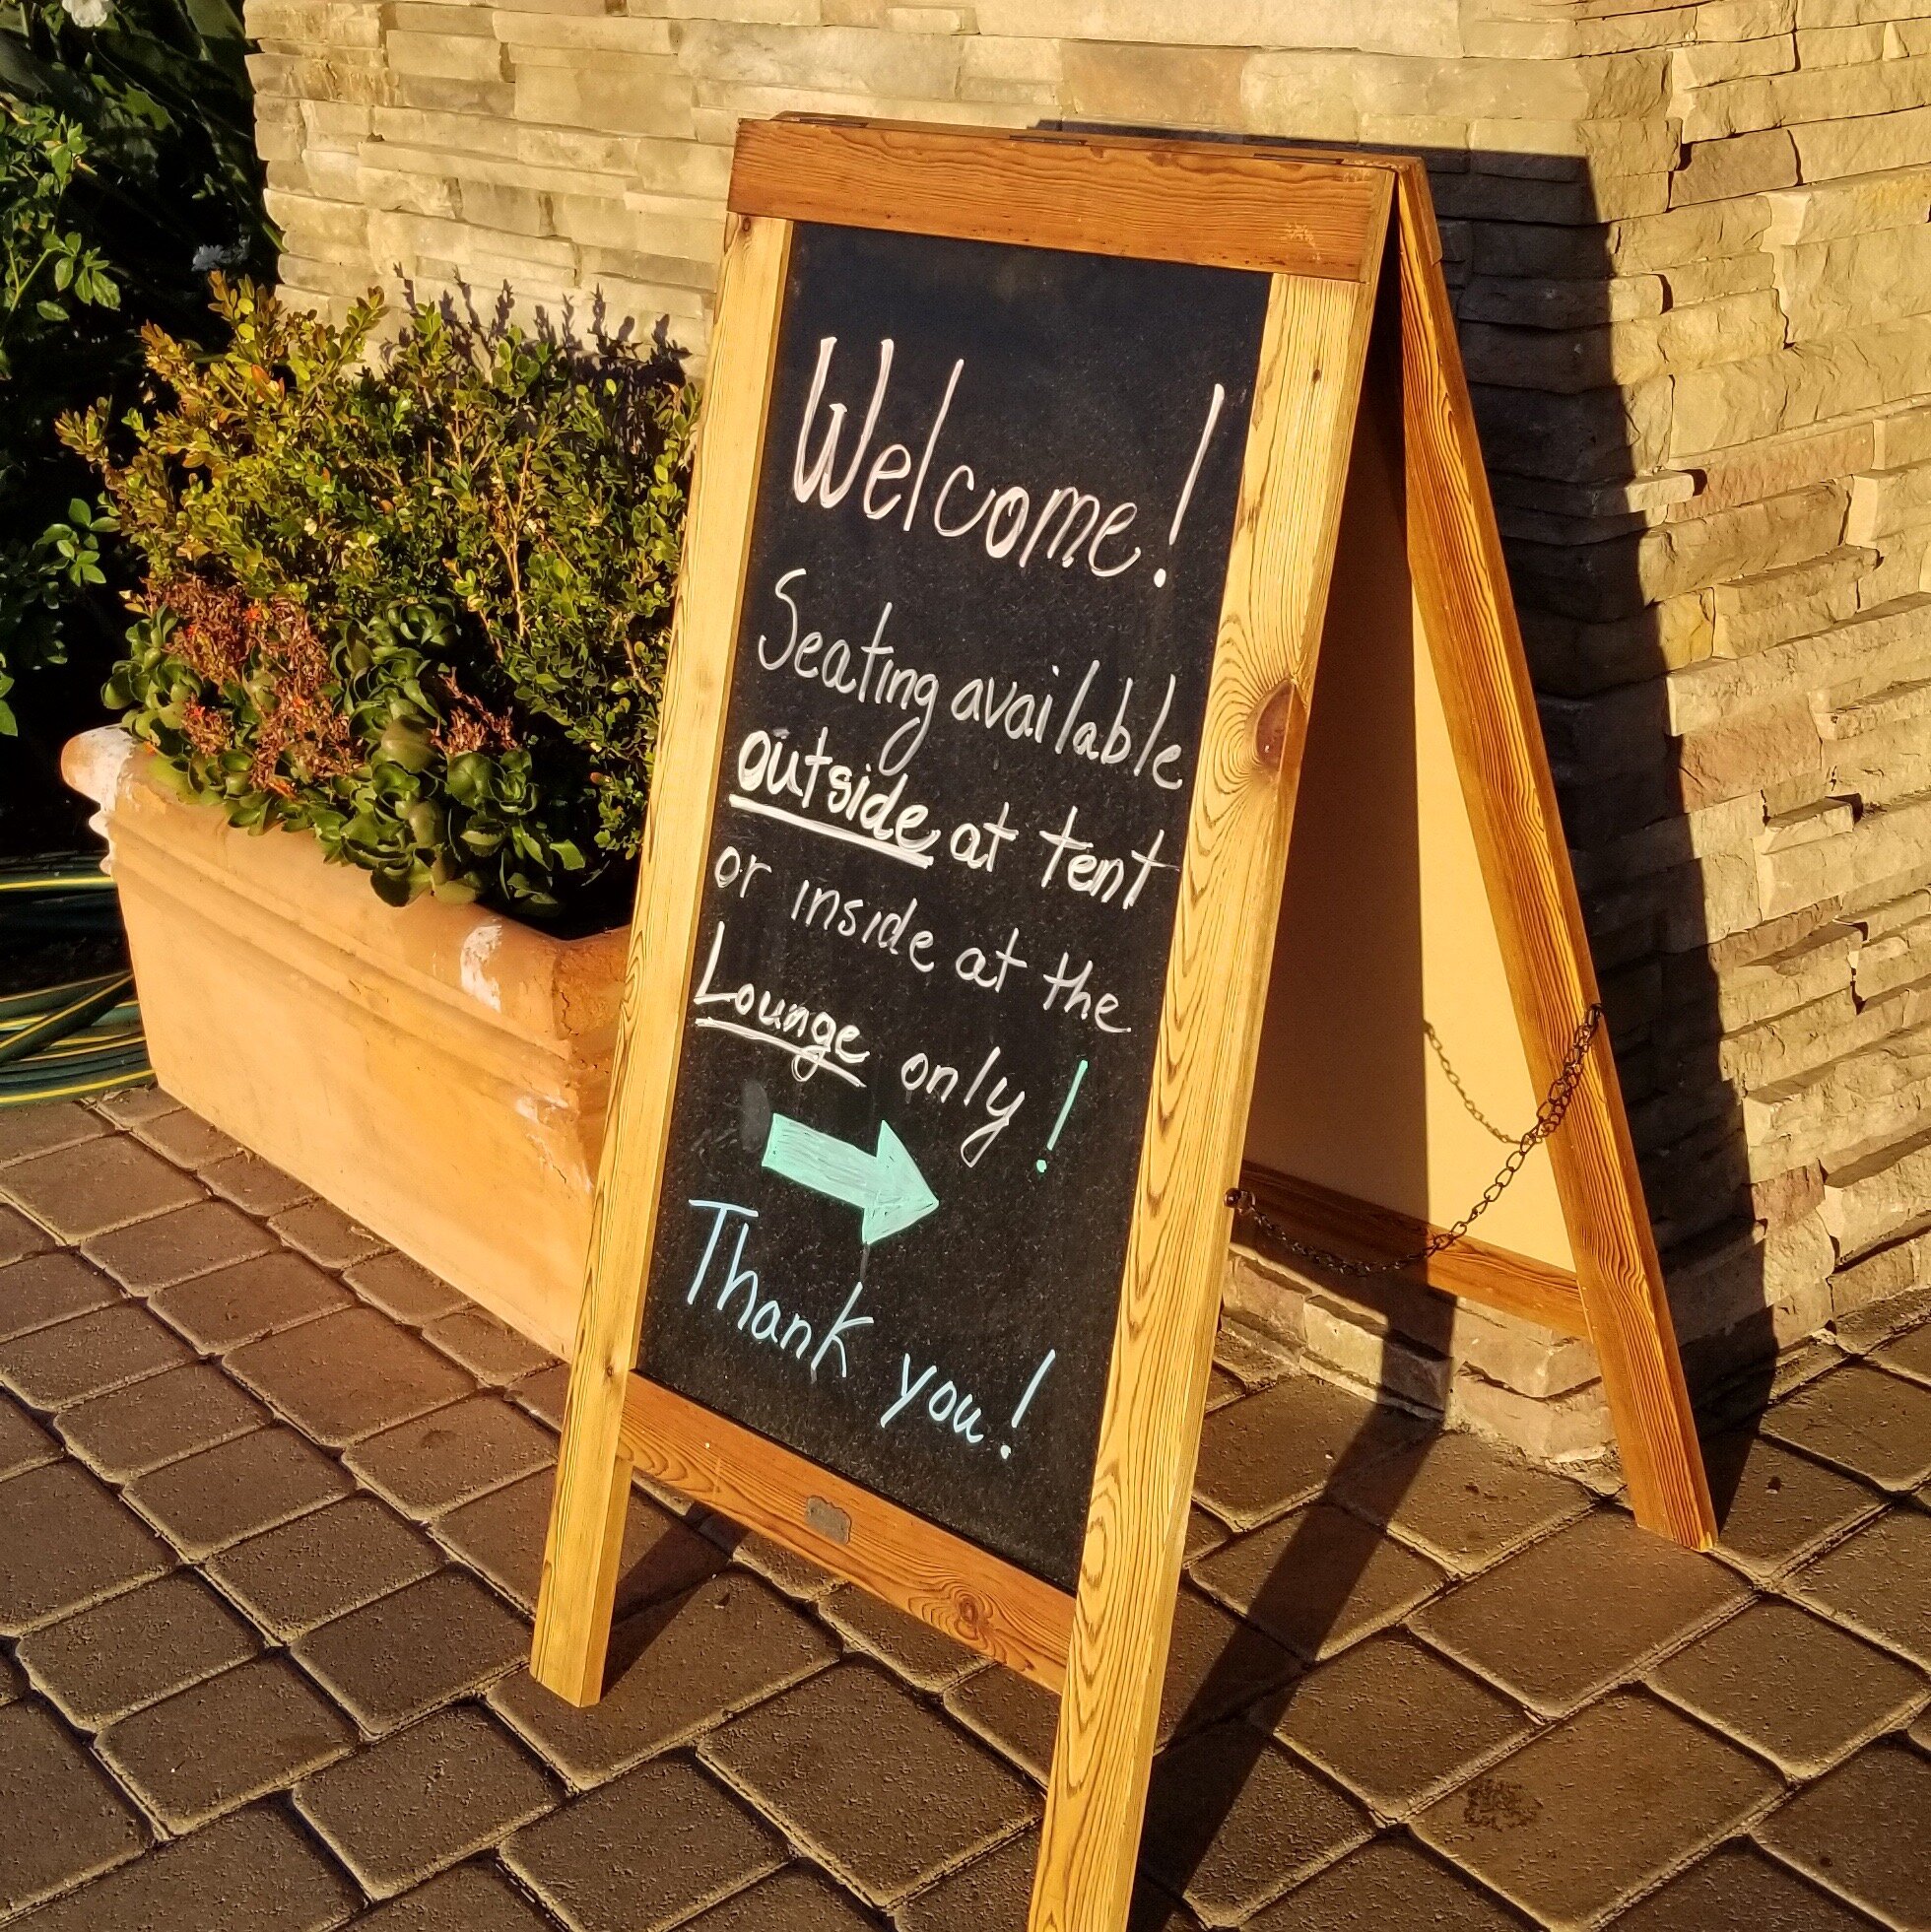 Welcome!
Seating available
outside at tent
or inside at the
Lounge only!
Thank you!